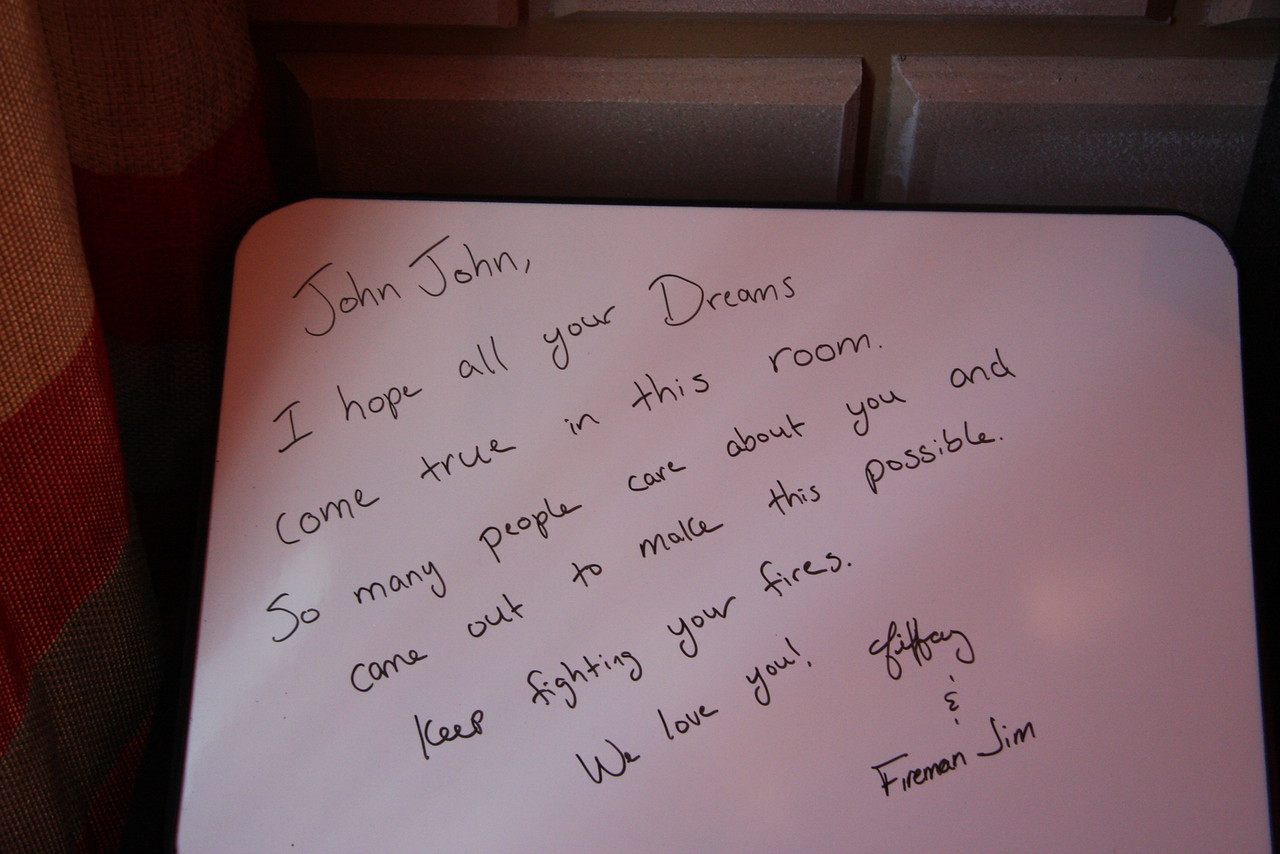 John John,
I hope all your Dreams
come true in this room.
So many people care about you and
came out to make this possible.
Keep fighting your fires.
We love you!
&
Fireman Jim